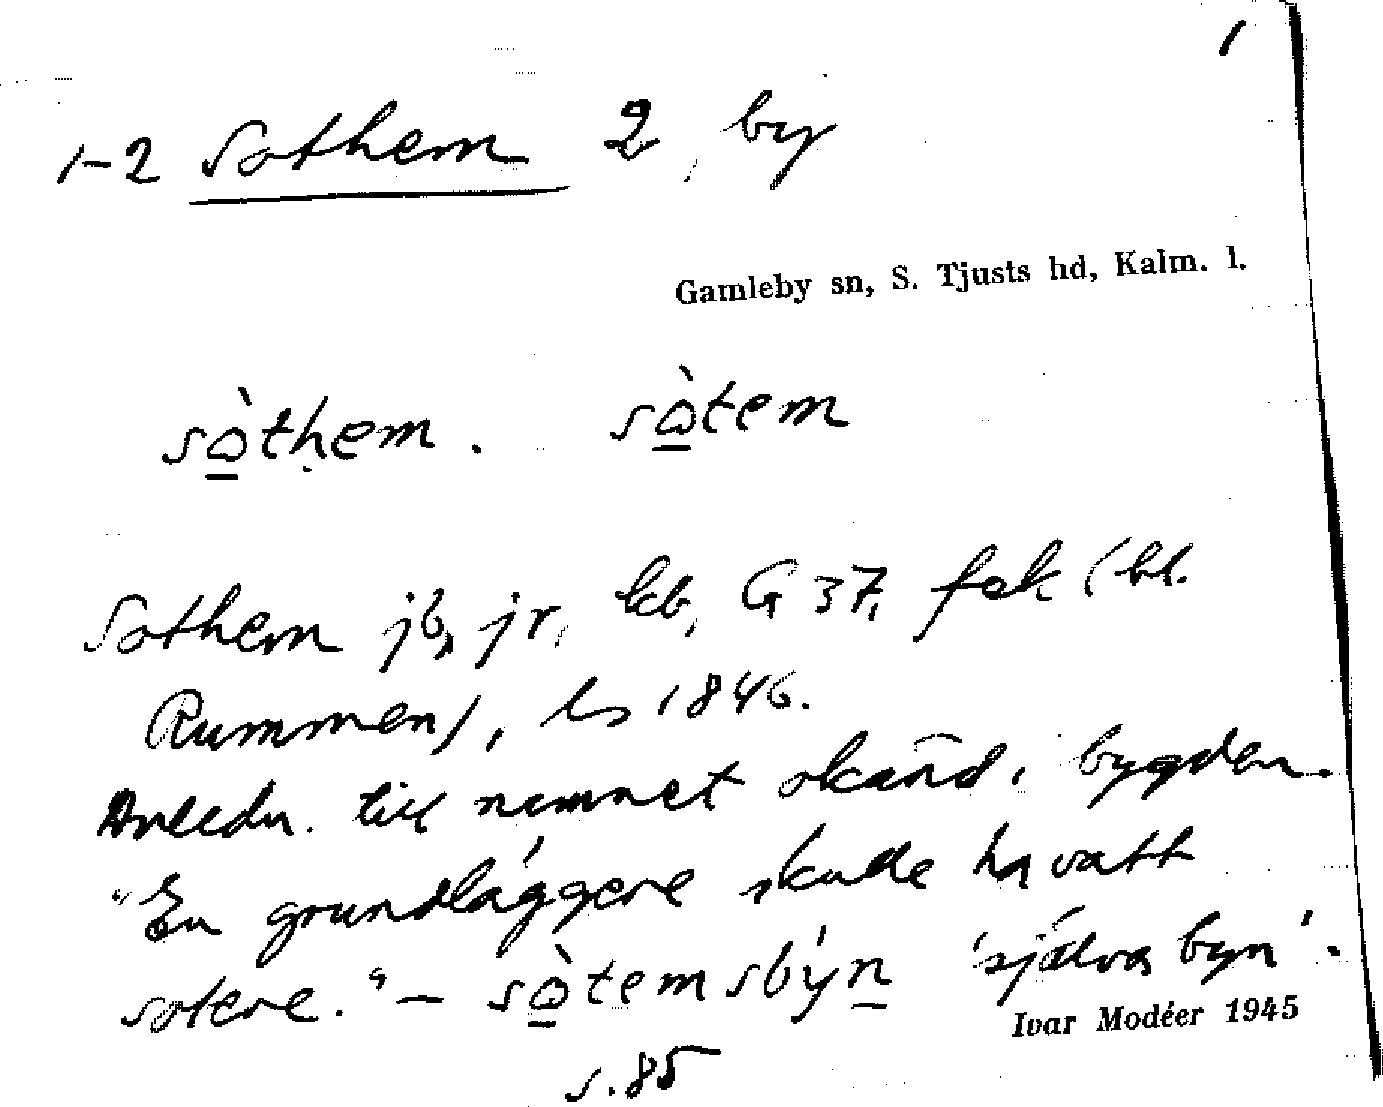 1
1-2 Sothem 2, by
Gamleby sn, S. Tjusts hd, Kalm. l.
sò̲tḥem. sò̲tem
Sothem jb, jr, kb, G 37, fek (bl.
Rummen), ls 1846.
Anledn. till namnet okänd i bygden.
"En grundläggare skulle ha vatt
sotare." — sò̲temsbýn̲ 'själva byn'.
Ivar Modéer 1945
s. 85